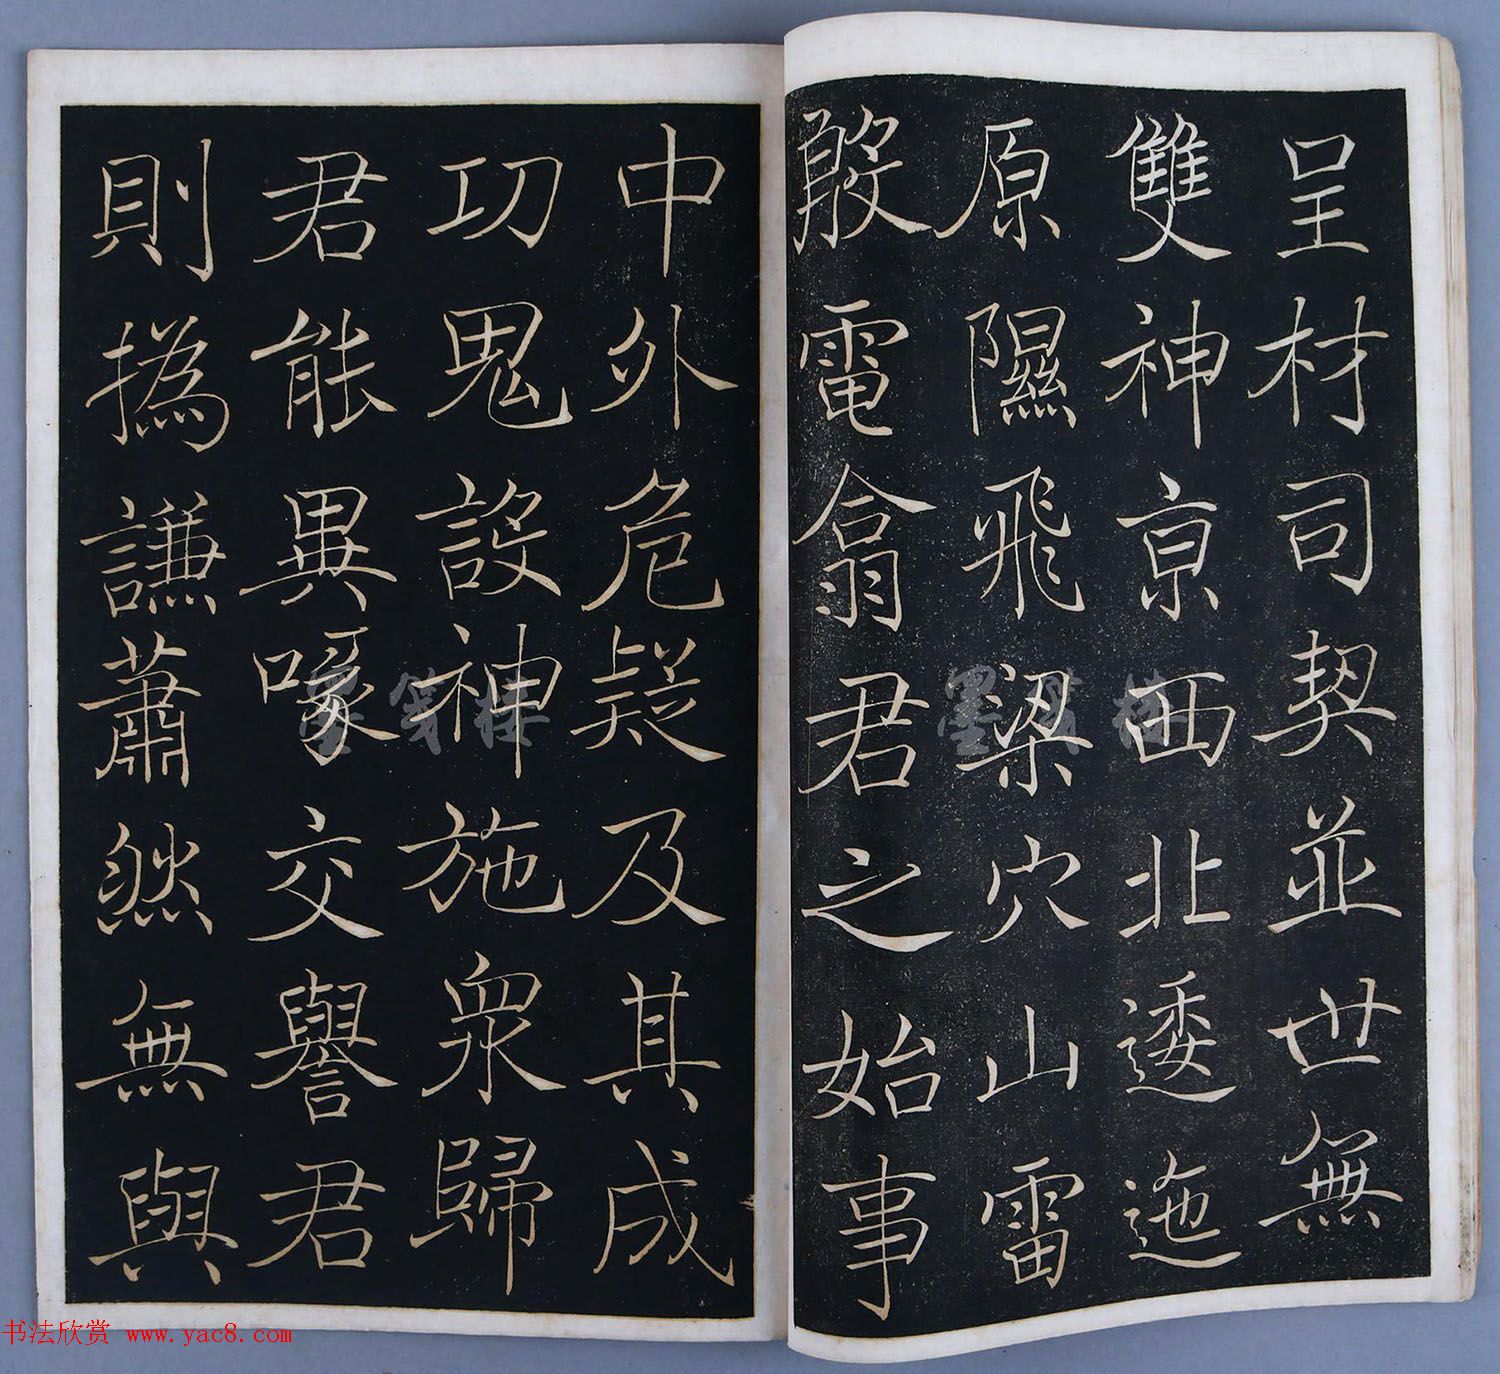 呈材司契並世無
雙神京西北逶迤
原隰飛梁穴山雷
殷電翕君之始事
中外危疑及其成
功鬼設神施衆歸
君能異喙交譽君
則撝謙蕭然無與
墨箋樓
墨箋樓
书法欣赏 www.yac8.com